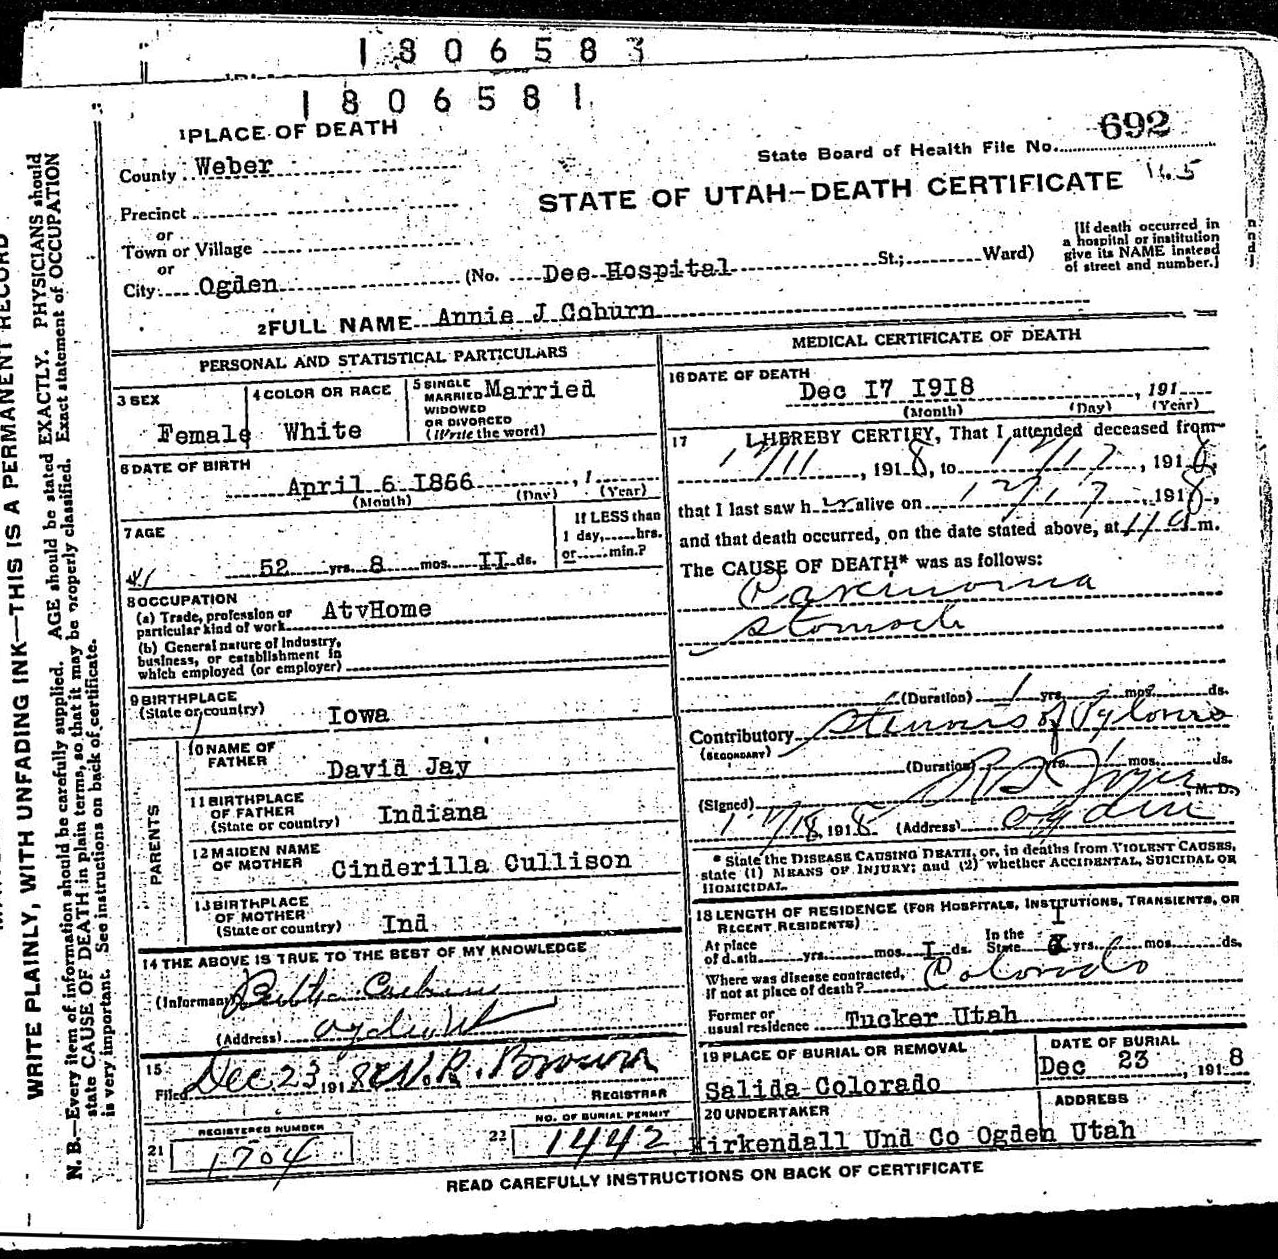 1806583
1806581
1 PLACE OF DEATH
County Weber
State Board of Health File No. 692
STATE OF UTAH—DEATH CERTIFICATE
Precinct
or
Town or Village
or
City Ogden (No. Dee Hospital St.; Ward)
[If death occurred in
a hospital or institution
give its NAME instead
of street and number.]
2 FULL NAME Annie J Coburn
PERSONAL AND STATISTICAL PARTICULARS
3 SEX
Female
4 COLOR OR RACE
White
5 SINGLE
MARRIED
WIDOWED
OR DIVORCED
(Write the word)
Married
6 DATE OF BIRTH
April 6 1866 , 1
(Month) (Day) (Year)
7 AGE
52 yrs. 8 mos. II ds.
If LESS than
1 day, hrs.
or min.?
8 OCCUPATION
(a) Trade, profession or
particular kind of work AtvHome
(b) General nature of industry,
business, or establishment in
which employed (or employer)
9 BIRTHPLACE
(State or country) Iowa
PARENTS
10 NAME OF
FATHER David Jay
11 BIRTHPLACE
OF FATHER
(State or country) Indiana
12 MAIDEN NAME
OF MOTHER Cinderilla Cullison
13 BIRTHPLACE
OF MOTHER
(State or country) Ind
14 THE ABOVE IS TRUE TO THE BEST OF MY KNOWLEDGE
(Informant)
(Address) Ogden Ut
15
Filed Dec 23 1918 Brown
REGISTRAR
21 REGISTERED NUMBER
1704
22 NO. OF BURIAL PERMIT
1442
MEDICAL CERTIFICATE OF DEATH
16 DATE OF DEATH
Dec I7 I9I8 , 191
(Month) (Day) (Year)
17 I HEREBY CERTIFY, That I attended deceased from
12/11, 1918, to 12/17, 1918,
that I last saw her alive on 12/17, 1918,
and that death occurred, on the date stated above, at 11 a m.
The CAUSE OF DEATH* was as follows:
Carcinoma
stomach
(Duration) 1 yrs. 2 mos. ds.
Contributory Stenosis of Pylorus
(SECONDARY)
(Duration) yrs. mos. ds.
(Signed) M. D.,
12/18, 1918 (Address) Ogden
* State the DISEASE CAUSING DEATH, or, in deaths from VIOLENT CAUSES,
state (1) MEANS OF INJURY; and (2) whether ACCIDENTAL, SUICIDAL OR
HOMICIDAL.
18 LENGTH OF RESIDENCE (FOR HOSPITALS, INSTITUTIONS, TRANSIENTS, OR
RECENT RESIDENTS)
At place
of death yrs. mos. I ds. In the
State I yrs. mos. ds.
Where was disease contracted,
if not at place of death? Colorado
Former or
usual residence Tucker Utah
19 PLACE OF BURIAL OR REMOVAL
Salida Colorado
DATE OF BURIAL
Dec 23 , 1918
20 UNDERTAKER
Kirkendall Und Co Ogden Utah
ADDRESS
READ CAREFULLY INSTRUCTIONS ON BACK OF CERTIFICATE
WRITE PLAINLY, WITH UNFADING INK—THIS IS A PERMANENT RECORD
N. B.—Every item of information should be carefully supplied. AGE should be stated EXACTLY. PHYSICIANS should
state CAUSE OF DEATH in plain terms, so that it may be properly classified. Exact statement of OCCUPATION
is very important. See instructions on back of certificate.